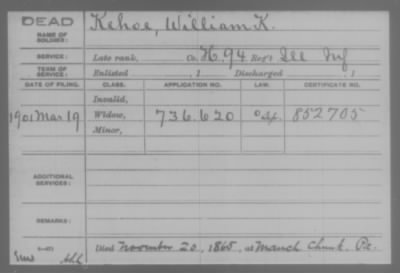 DEAD
NAME OF SOLDIER: Kehoe, William K.
SERVICE: Late rank, Co. H, 94 Reg't Ill Inf
TERM OF SERVICE: Enlisted , 1 Discharged , 1
DATE OF FILING. CLASS. APPLICATION NO. LAW. CERTIFICATE NO.
Invalid,
1901 Mar 19 Widow, 736.620 852705
Minor,
ADDITIONAL SERVICES:
REMARKS:
Died November 20, 1865, at Mauch Chunk, Pa.